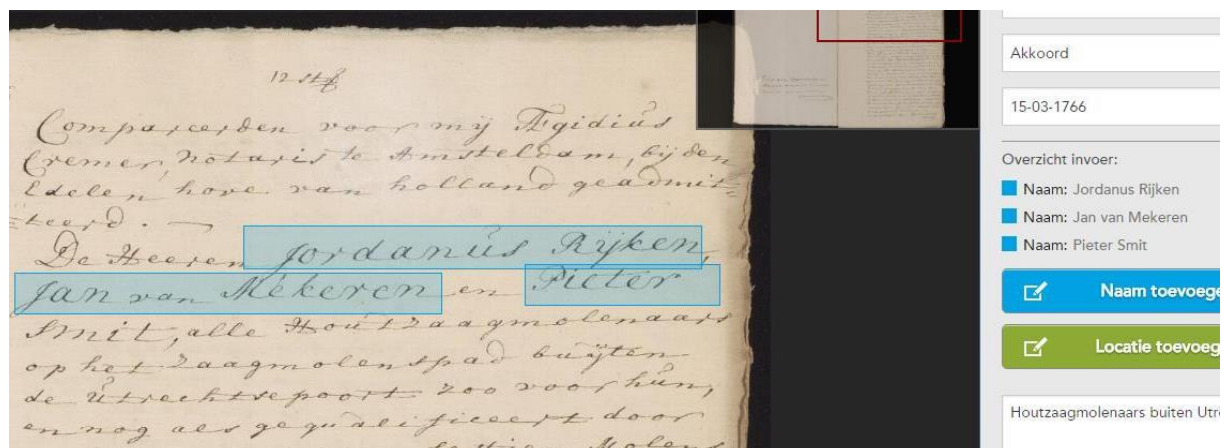 12 st
Compareerden voor mij Ægidius
Cremer, Notaris te Amsteldam, bij den
Edelen hove van holland geadmit=
=teerd. —
De Heeren Jordanus Rijken,
Jan van Mekeren en Pieter
Smit, alle Houtzaagmolenaars
op het Zaagmolenspad buÿten
de Utrechtsepoort zoo voor hun,
en nog als gequalificeert door
Molens
Akkoord
15-03-1766
Overzicht invoer:
Naam: Jordanus Rijken
Naam: Jan van Mekeren
Naam: Pieter Smit
Naam toevoege
Locatie toevoeg
Houtzaagmolenaars buiten Utr